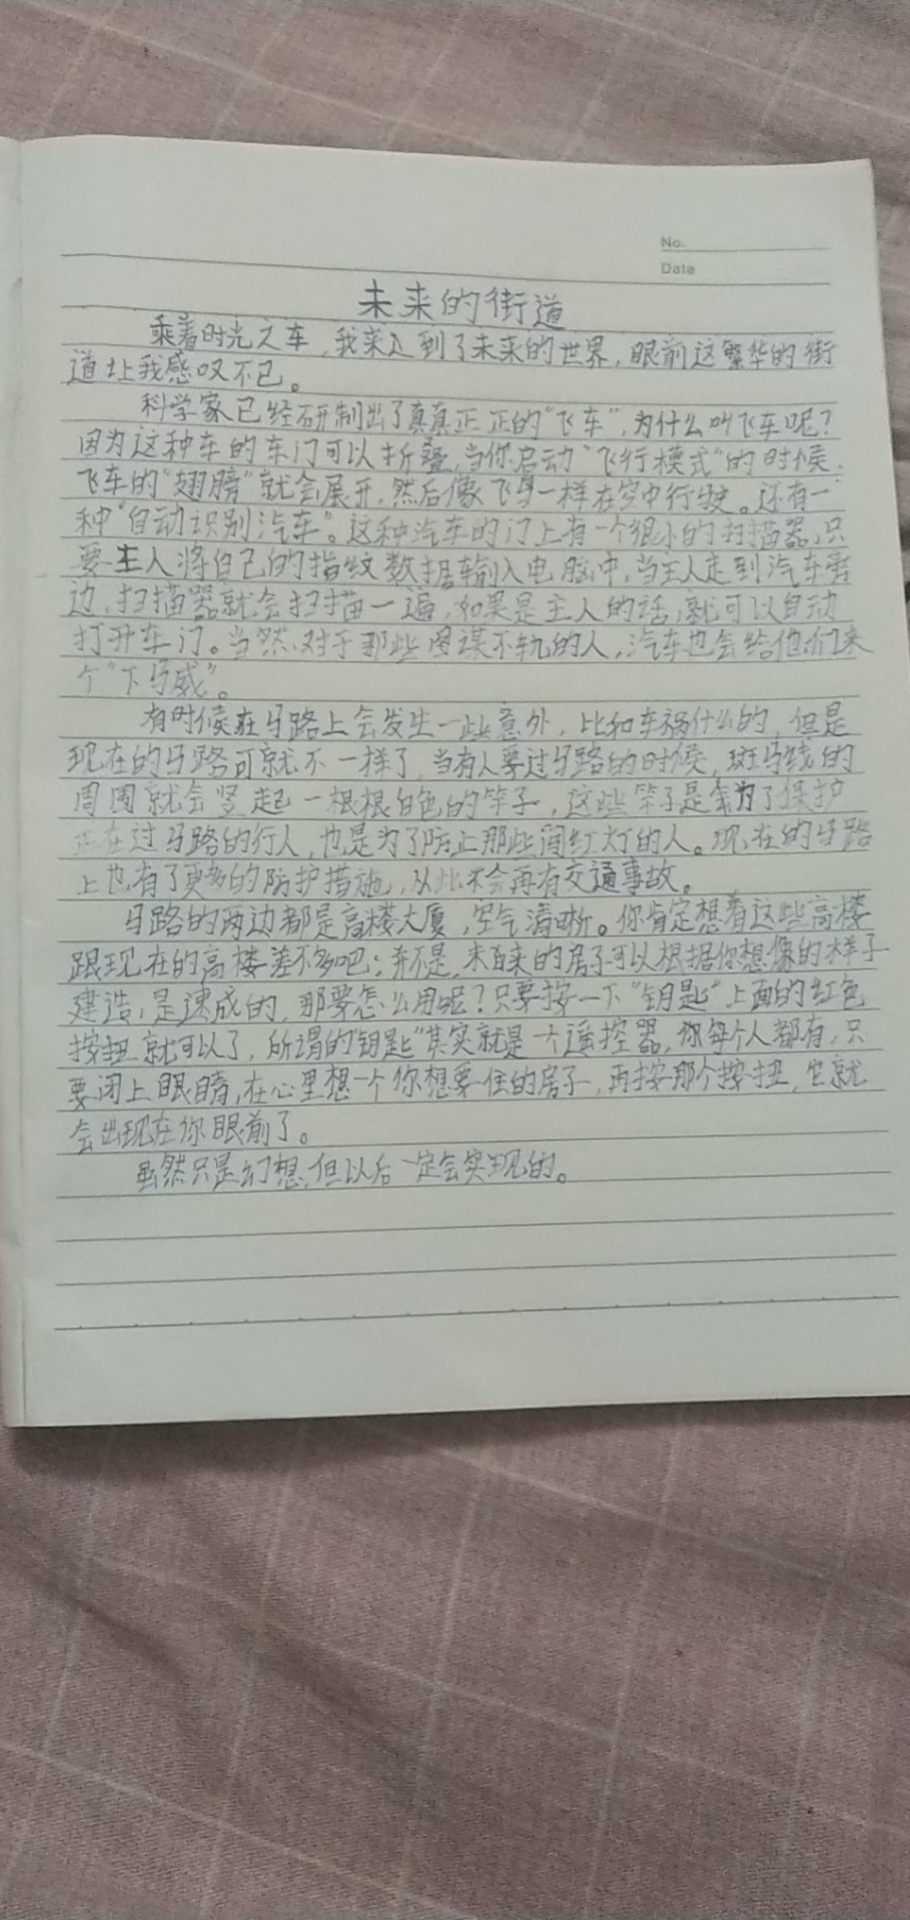 No.
Date
未来的街道
乘着时光之车，我来到了未来的世界，眼前这繁华的街
道让我感叹不已。
科学家已经研制出了真真正正的“飞车”，为什么叫飞车呢？
因为这种车的车门可以折叠，当你启动“飞行模式”的时候，
飞车的“翅膀”就会展开，然后像飞鸟一样在空中行驶。还有一
种“自动识别汽车”。这种汽车的门上有一个很小的扫描器，只
要主人将自己的指纹数据输入电脑中，当主人走到汽车旁
边，扫描器就会扫描一遍，如果是主人的话，就可以自动
打开车门。当然，对于那些图谋不轨的人，汽车也会给他们来
个“下马威”。
有时候在马路上会发生一些意外，比如车祸什么的，但是
现在的马路可就不一样了，当有人要过马路的时候，斑马线的
周围就会竖起一根根白色的竿子，这些竿子是为了保护
正在过马路的行人，也是为了防止那些闯红灯的人。现在的马路
上也有了更多的防护措施，从此不会再有交通事故。
马路的两边都是高楼大厦，空气清晰。你肯定想着这些高楼
跟现在的高楼差不多吧；并不是，未来的房子可以根据你想像的样子
建造，是速成的，那要怎么用呢？只要按一下“钥匙”上面的红色
按扭就可以了，所谓的钥匙”其实就是一个遥控器，你每个人都有，只
要闭上眼睛，在心里想一个你想要住的房子，再按那个按扭，它就
会出现在你眼前了。
虽然只是幻想，但以后一定会实现的。